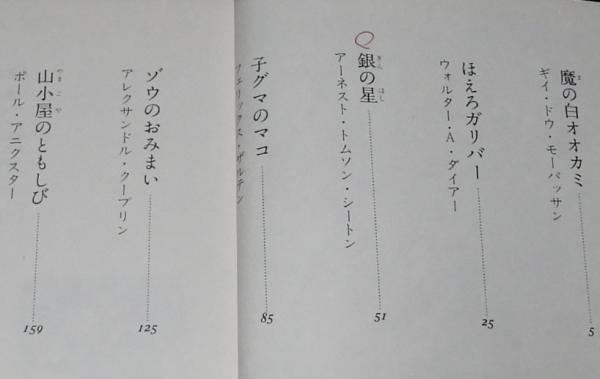 魔の白オオカミ
ま
ギイ・ドウ・モーパッサン
5
ほえろガリバー
ウォルター・A・ダイアー
25
銀の星
ぎん ほし
アーネスト・トムソン・シートン
51
子グマのマコ
フェリックス・ザルテン
85
ゾウのおみまい
アレクサンドル・クープリン
125
山小屋のともしび
やまごや
ポール・アニクスター
159